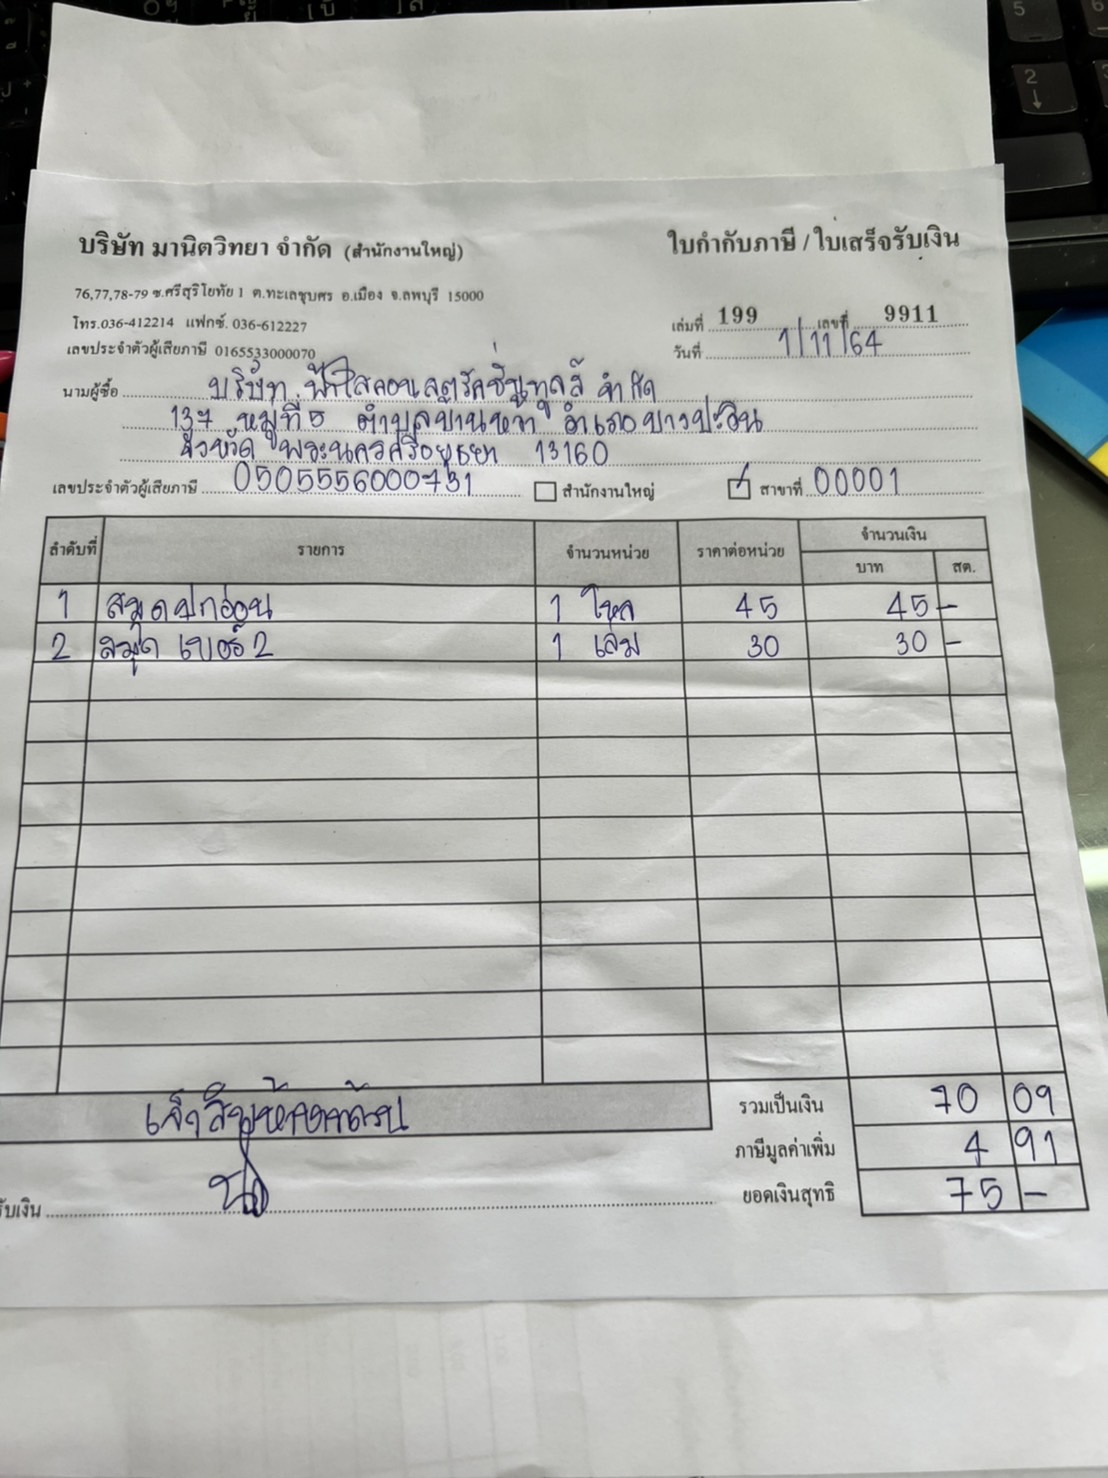 บริษัท มานิตวิทยา จำกัด (สำนักงานใหญ่)
ใบกำกับภาษี / ใบเสร็จรับเงิน
76,77,78-79 ซ.ศรีสุริโยทัย 1 ต.ทะเลชุบศร อ.เมือง จ.ลพบุรี 15000
โทร.036-412214 แฟกซ์. 036-612227
เล่มที่ 199 เลขที่ 9911
เลขประจำตัวผู้เสียภาษี 0165533000070
วันที่ 1/11/64
นามผู้ซื้อ บริษัท ฟ้าใสคอนสตรัคชั่นทูลส์ จำกัด
137 หมู่ที่ 5 ตำบลบ้านหว้า อำเภอบางปะอิน
จังหวัด พระนครศรีอยุธยา 13160
เลขประจำตัวผู้เสียภาษี 0505556000731 สำนักงานใหญ่ สาขาที่ 00001
ลำดับที่ รายการ จำนวนหน่วย ราคาต่อหน่วย จำนวนเงิน
บาท สต.
1 สมุดปกอ่อน 1 โหล 45 45 -
2 สมุด เบอร์ 2 1 เล่ม 30 30 -
รวมเป็นเงิน 70 09
เจ็ดสิบห้าบาทถ้วน
ภาษีมูลค่าเพิ่ม 4 91
ยอดเงินสุทธิ 75 -
รับเงิน